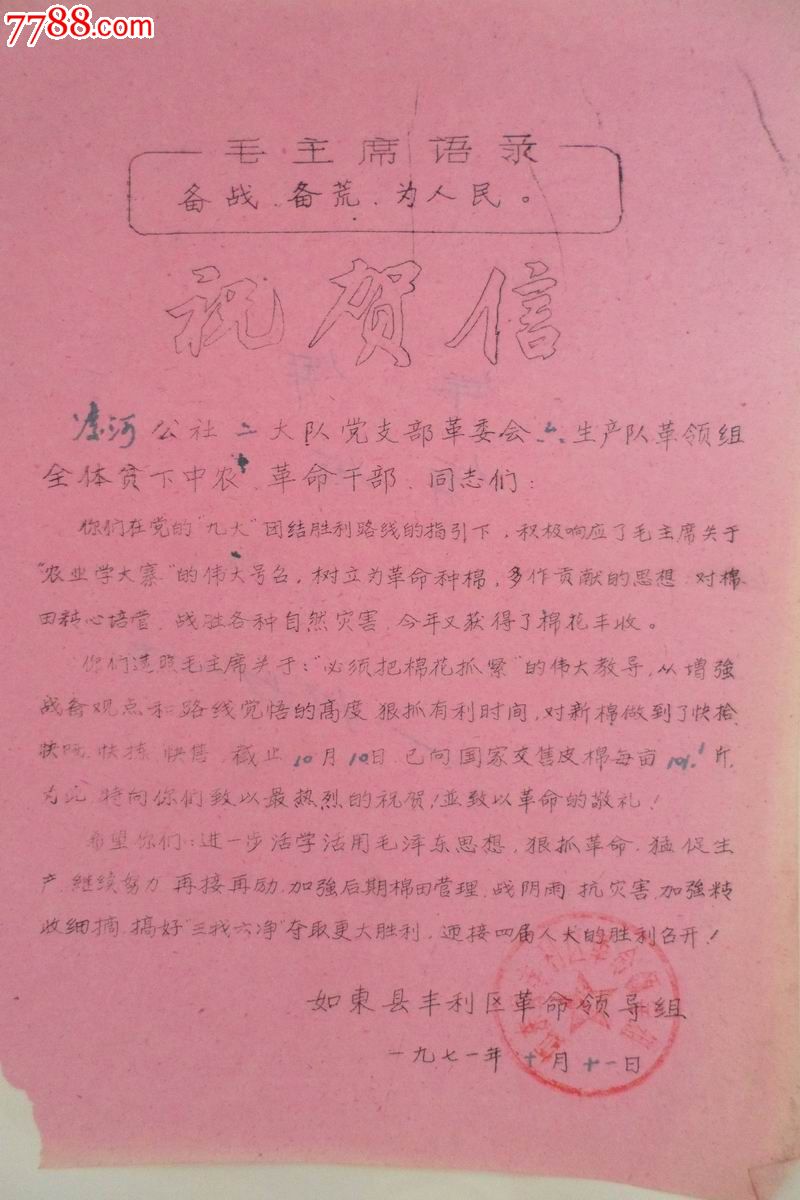 7788.com
毛主席语录
备战、备荒、为人民。
祝贺信
凌河公社二大队党支部革委会六生产队革领组
全体贫下中农、革命干部、同志们:
你们在党的“九大”团结胜利路线的指引下,积极响应了毛主席关于
“农业学大寨”的伟大号召,树立为革命种棉,多作贡献的思想,对棉
田精心培管,战胜各种自然灾害,今年又获得了棉花丰收。
你们遵照毛主席关于:“必须把棉花抓紧”的伟大教导,从增強
战备观点和路线觉悟的高度,狠抓有利时间,对新棉做到了快拾
快晒、快拣、快售,截止10月10日,已向国家交售皮棉每亩101.1斤,
为此,特向你们致以最热烈的祝贺!並致以革命的敬礼!
希望你们:进一步活学活用毛泽东思想,狠抓革命,猛促生
产,继续努力,再接再励,加強后期棉田管理,战阴雨,抗灾害,加強精
收细摘,搞好“三找六净”夺取更大胜利,迎接四届人大的胜利召开!
如東县丰利区革命领导组
一九七一年十月十一日